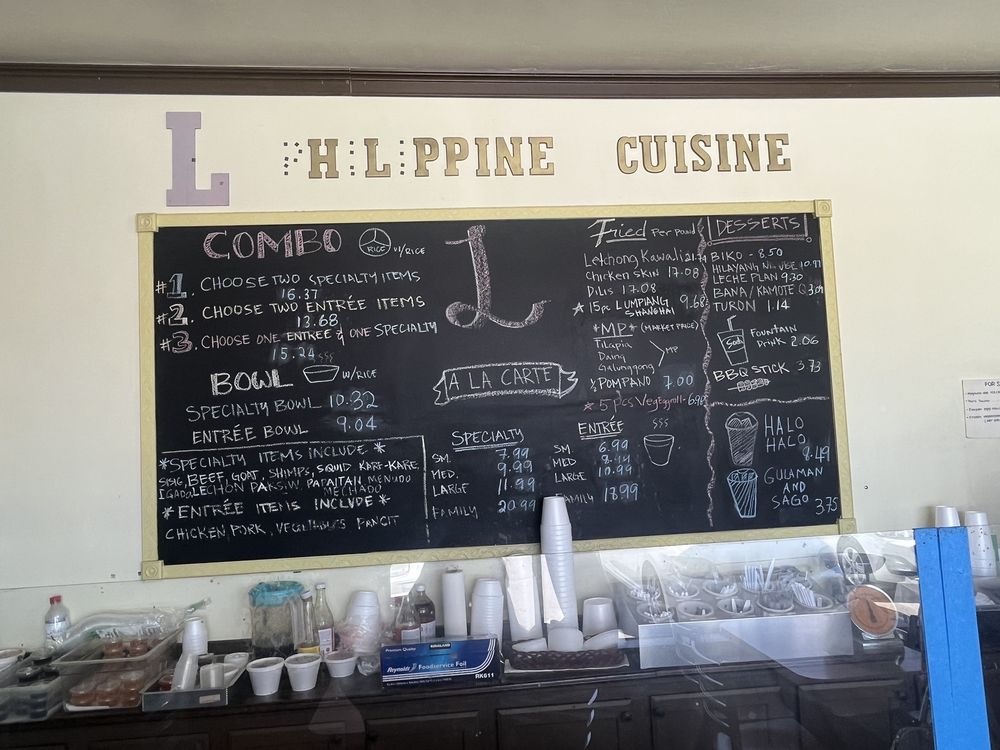 L PHILIPPINE CUISINE
COMBO RICE W/RICE
#1. CHOOSE TWO SPECIALTY ITEMS
16.37
#2. CHOOSE TWO ENTRÉE ITEMS
13.68
#3. CHOOSE ONE ENTREE & ONE SPECIALTY
15.24
BOWL W/RICE
SPECIALTY BOWL 10.32
ENTRÉE BOWL 9.04
*SPECIALTY ITEMS INCLUDE*
SISIG, BEEF, GOAT, SHIMPS, SQUID KARE-KARE,
IGADO, LECHON PAKSIW, PAPAITAN MENUDO
MECHADO
*ENTRÉE ITEMS INCLUDE*
CHICKEN, PORK, VEGETABLES PANCIT
L
A LA CARTE
SPECIALTY
SM. 7.99
MED. 9.99
LARGE 11.99
FAMILY 20.99
ENTRÉE
SM 6.99
MED
LARGE 10.99
FAMILY 18.99
Fried Per Pound
Letchong Kawali
Chicken SKIN 17.08
Dilis 17.08
15pc LUMPIANG 9.68
SHANGHAI
*MP* (MARKET PRICE)
Tilapia
Daing MP
Galunggong
POMPANO 7.00
* 5pcs Veg Eggroll
DESSERTS
BIKO - 8.50
HILAYANG
LECHE PLAN 9.30
BANA/KAMOTE Q
TURON 1.14
Soda FOUNTAIN
DRINK 2.06
BBQ STICK 3.73
HALO
HALO
8.49
GULAMAN
AND
SAGO 3.75
FOR S
KIRKLAND
Reynolds Foodservice Foil
RK611